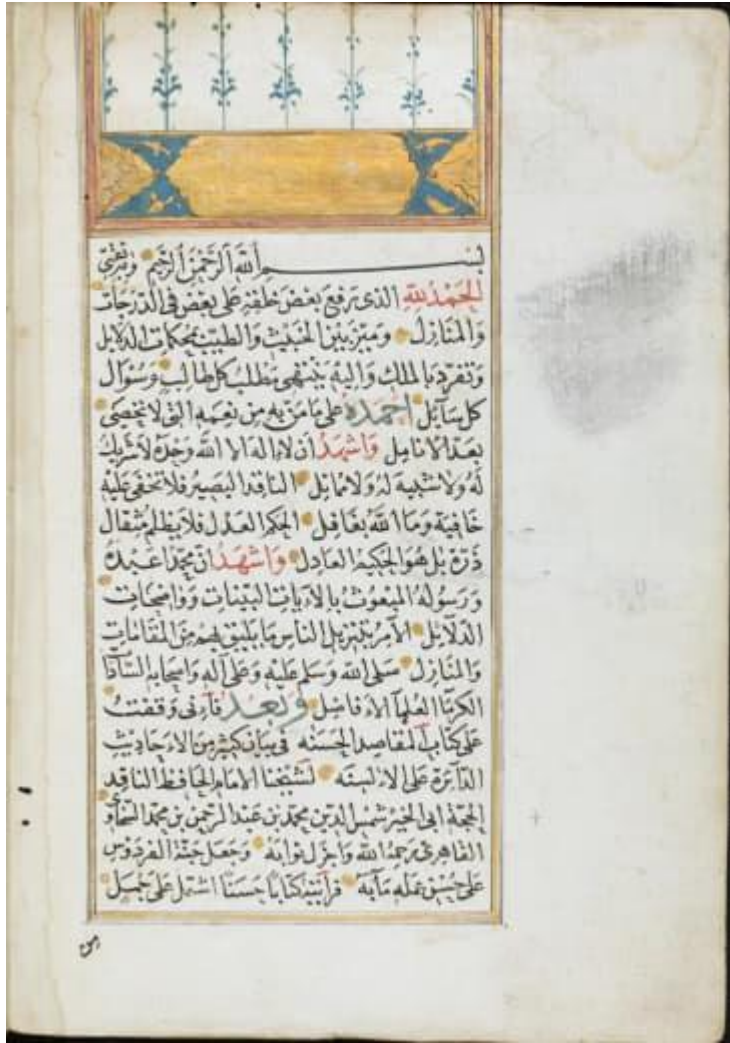 بسم الله الرحمن الرحيم وبه ثقتي
الحمد لله الذي رفع بعض خلقه على بعض في الدرجات
والمنازل وميز بين الخبيث والطيب بمحكمات الدلايل
وتفرد بالملك واليه ينتهى مطلب كل طالب وسؤال
كل سآيل احمده على ما من به من نعمه التي لا تحصى
بعد الانامل واشهد ان لا اله الا الله وحده لا شريك
له ولا شبيه له ولا مماثل الناقد البصير فلا تخفى عليه
خافية وما الله بغافل الحكم العدل فلا يظلم مثقال
ذرة بل هو الحكيم العادل واشهد ان محمدا عبده
ورسوله المبعوث بالايات البينات وواضحات
الدلايل الآمر بتنزيل الناس ما يليق بهم من المقامات
والمنازل صلى الله وسلم عليه وعلى آله واصحابه
الكرما العلمآ الافاضل وبعد فاني وقفت
على كتاب المقاصد الحسنه في بيان كثير من الاحاديث
الدآيرة على الالسنه لشيخنا الامام الحافظ الناقد
الحجة ابى الخير شمس الدين محمد بن عبد الرحمن بن محمد السخاوى
القاهرى رحمه الله واجزل ثوابه وجعل جنة الفردوس
على حسن عمله مآبه فرأيته كتابا حسنا اشتمل على جميل
من